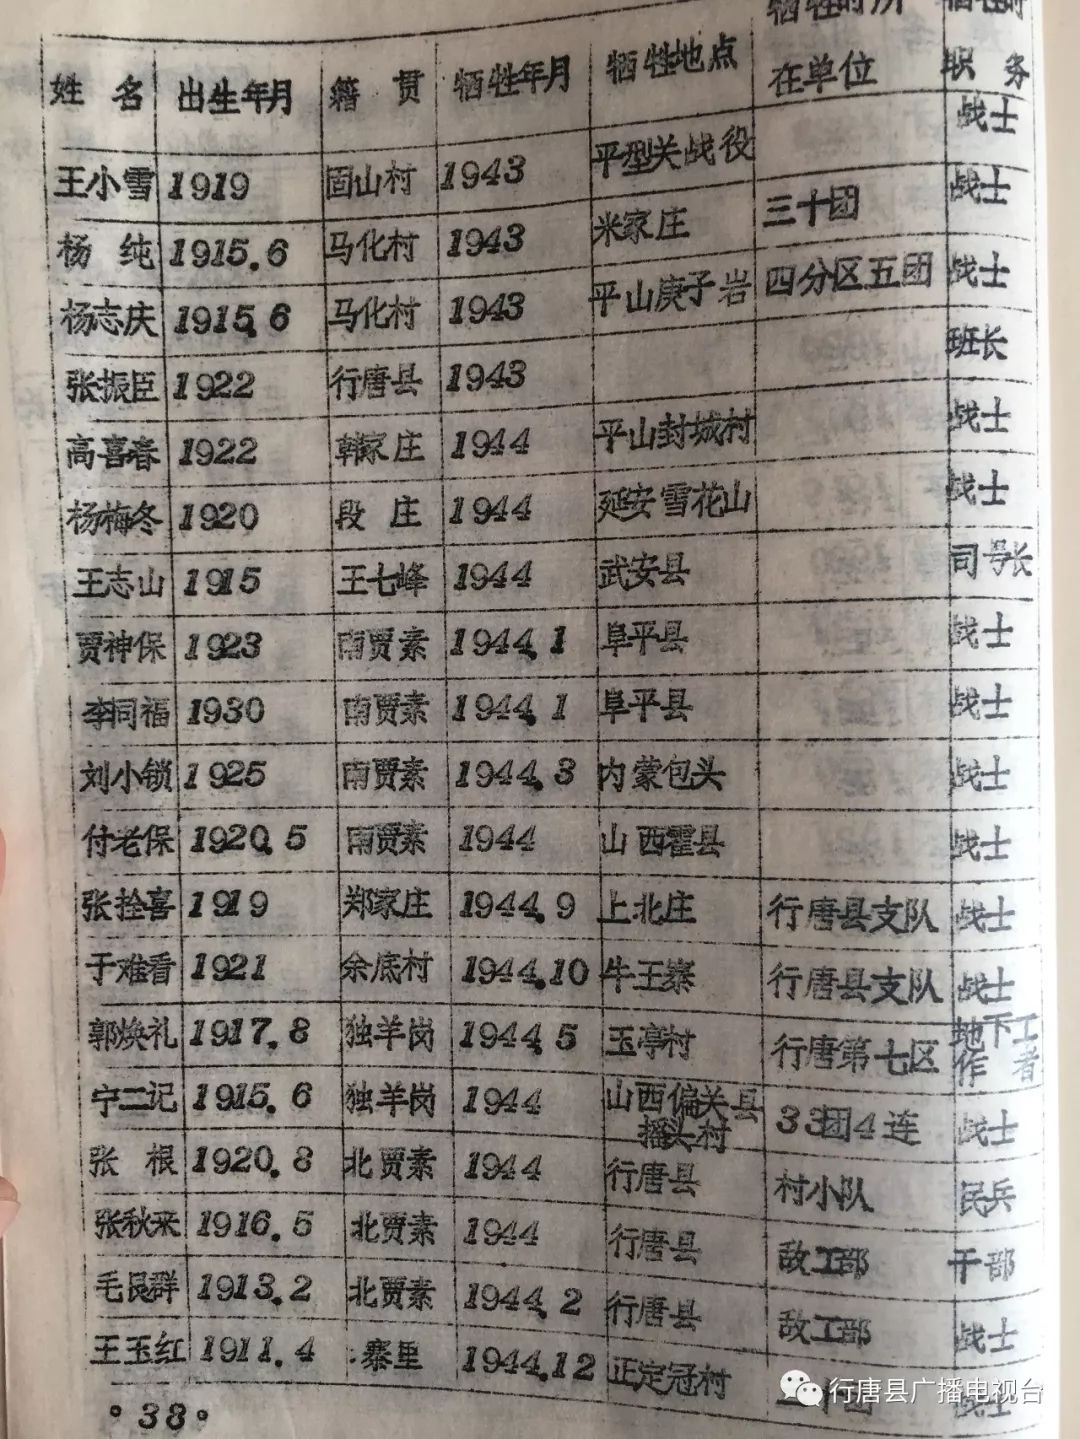 姓 名 出生年月 籍 贯 牺牲年月 牺牲地点 牺牲时所在单位 牺牲时职务
王小雪 1919 固山村 1943 平型关战役 战士
杨 纯 1915.6 马化村 1943 米家庄 三十团 战士
杨志庆 1915.6 马化村 1943 平山庚子岩 四分区五团 战士
张振臣 1922 行唐县 1943 班长
高喜春 1922 韩家庄 1944 平山封城村 战士
杨梅冬 1920 段 庄 1944 延安雪花山 战士
王志山 1915 王七峰 1944 武安县 司号长
贾神保 1923 南贾素 1944.1 阜平县 战士
李同福 1930 南贾素 1944.1 阜平县 战士
刘小锁 1925 南贾素 1944.3 内蒙包头 战士
付老保 1920.5 南贾素 1944 山西霍县 战士
张拴喜 1919 郑家庄 1944.9 上北庄 行唐县支队 战士
于难看 1921 余底村 1944.10 牛王寨 行唐县支队 战士
郭焕礼 1917.8 独羊岗 1944.5 玉亭村 行唐第七区 地下工作者
宁二记 1915.6 独羊岗 1944 山西偏关县摇头村 33团4连 战士
张 根 1920.8 北贾素 1944 行唐县 村小队 民兵
张秋来 1916.5 北贾素 1944 行唐县 敌工部 干部
毛良群 1913.2 北贾素 1944.2 行唐县 敌工部 战士
王玉红 1911.4 寨里 1944.12 正定冠村 战士
·38·
行唐县广播电视台